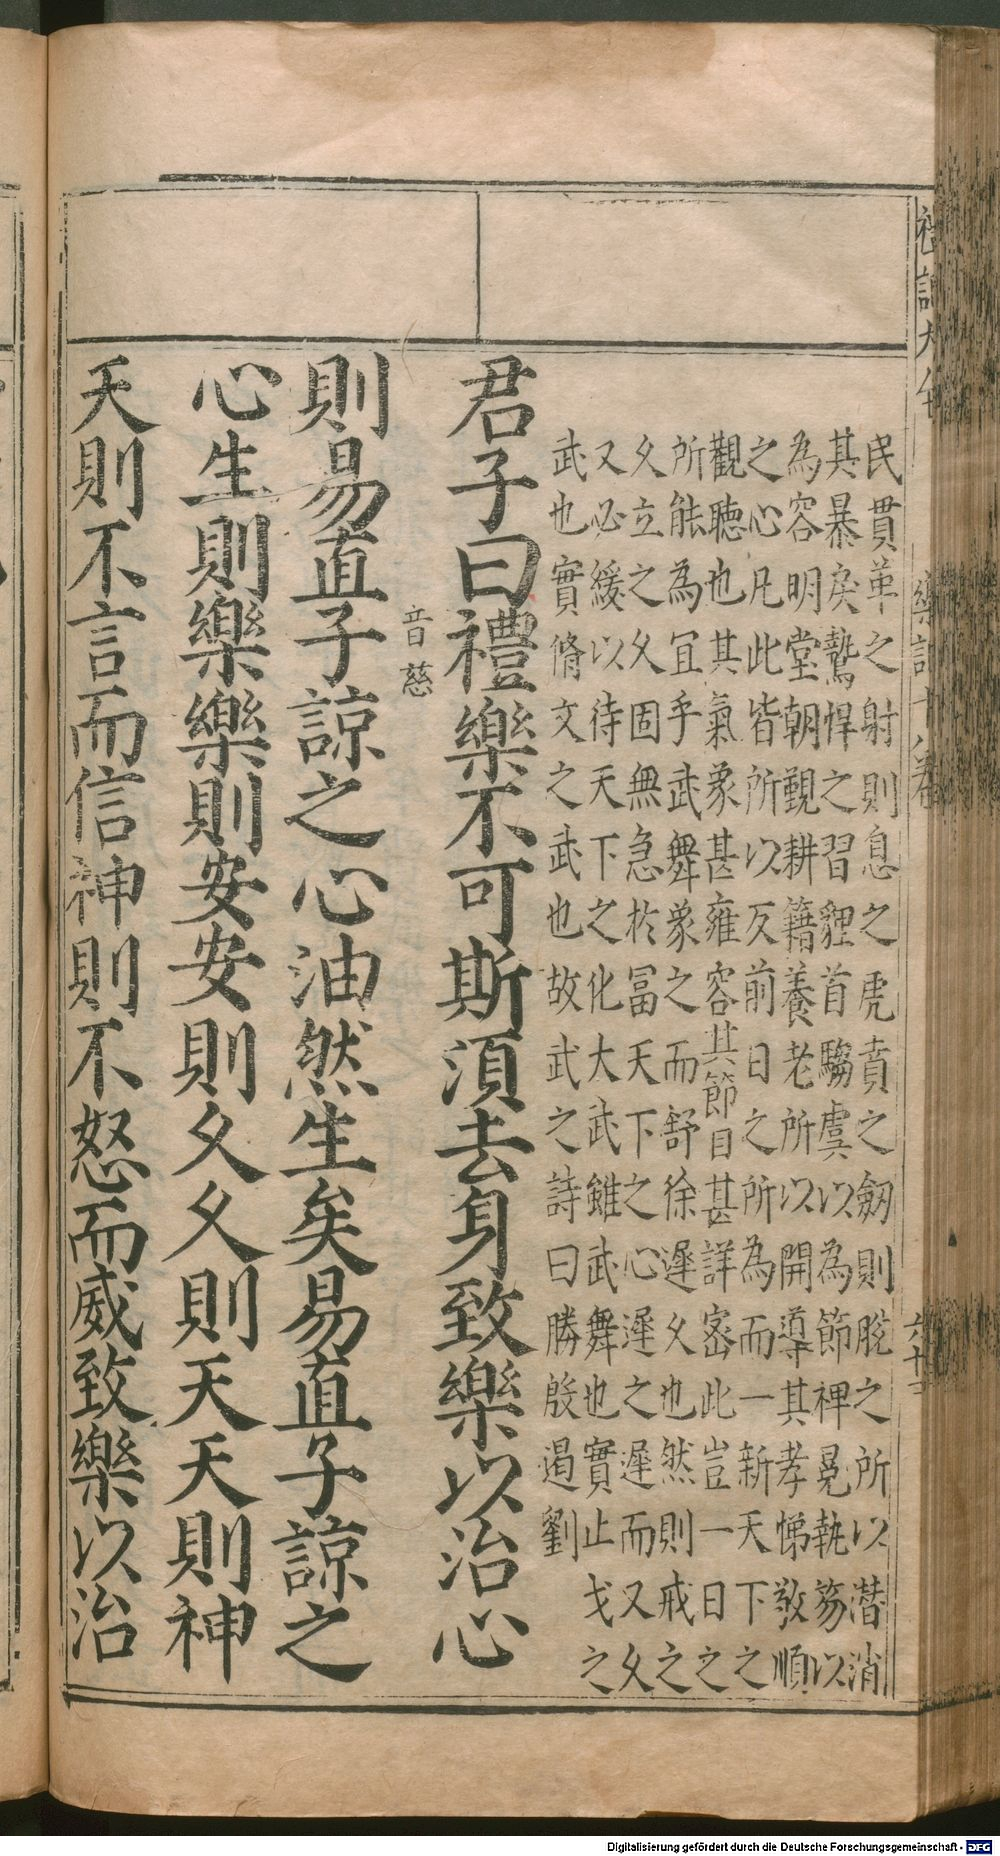 民貫革之射則息之虎賁之劔則脫之所以潛消
其暴戾鷙悍之習貍首騶虞以為節裨冕執笏以
為容明堂朝覲耕籍養老所以開導其孝悌敬順
之心凡此皆所以反前日之所為而一新天下之
觀聽也其氣象甚雍容其節目甚詳密此豈一日之
所能為冝乎武舞象之而舒徐遲乆也然則戒之
乆立之乆固無急於冨天下之心遲之遲而又乆
又必緩以待天下之化大武雖武舞也實止戈之
武也實脩文之武也故武之詩曰勝殷遏劉
君子曰禮樂不可斯湏去身致樂以治心
則易直子諒之心油然生矣易直子諒之
音慈
心生則樂樂則安安則乆乆則天天則神
天則不言而信神則不怒而威致樂以治
樂記十八卷
Digitalisierung gefördert durch die Deutsche Forschungsgemeinschaft - DFG